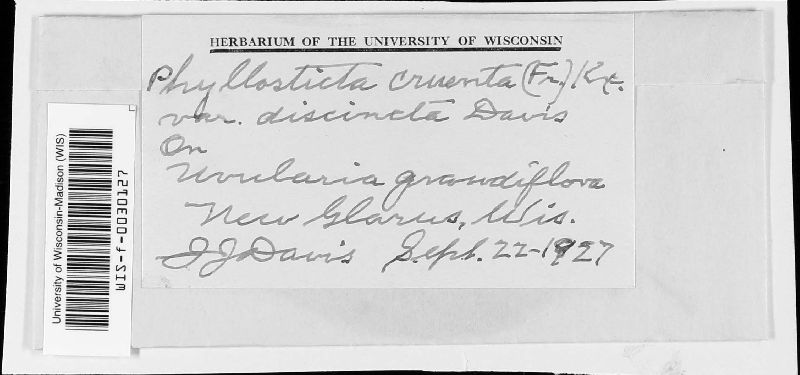 HERBARIUM OF THE UNIVERSITY OF WISCONSIN
Phyllosticta cruenta (Fr.) Kx.
var. discincta Davis
On
Uvularia grandiflora
New Glarus, Wis.
J J Davis Sept. 22-1927
University of Wisconsin-Madison (WIS)
WIS-f-0030127